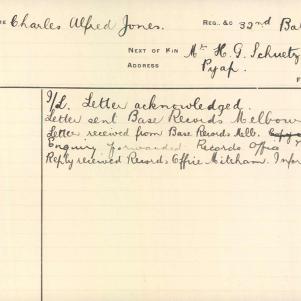 Charles Alfred Jones. REG. &C 32nd Ba
NEXT OF KIN Mr H. G. Schuetz
ADDRESS Pyap.
I/L. Letter acknowledged.
Letter sent Base Records Melbour
Letter received from Base Records Melb.
Enquiry forwarded Records Office
Reply received Records Office Mitcham. Infor